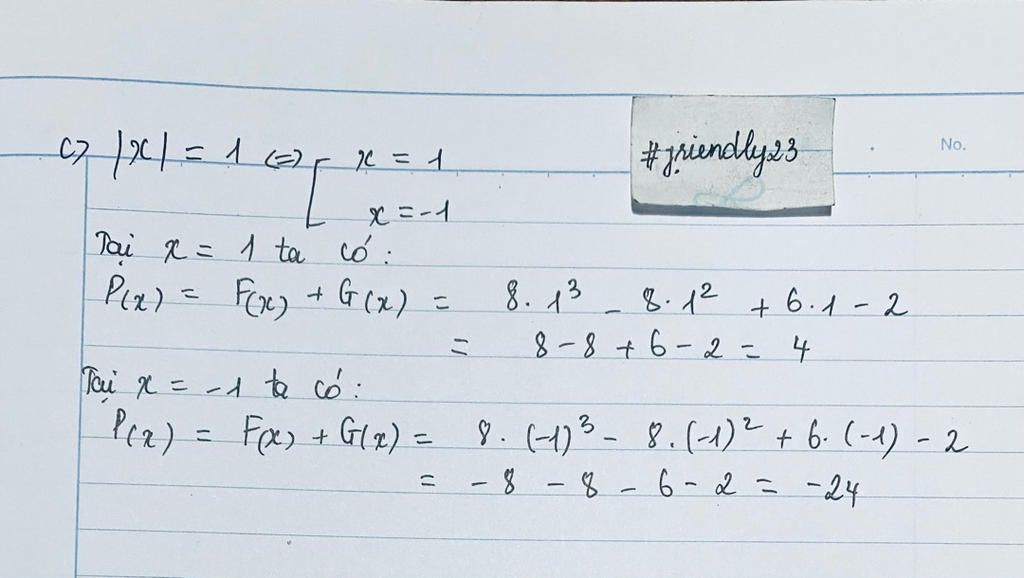 c) |x| = 1 <=> [ x = 1
x = -1
#friendly23
No.
Tại x = 1 ta có:
P(x) = F(x) + G(x) = 8.1³ - 8.1² + 6.1 - 2
= 8 - 8 + 6 - 2 = 4
Tại x = -1 ta có:
P(x) = F(x) + G(x) = 8.(-1)³ - 8.(-1)² + 6.(-1) - 2
= -8 - 8 - 6 - 2 = -24